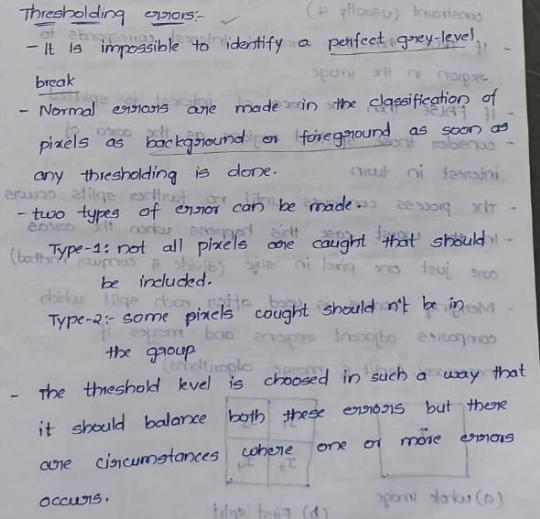 Thresholding errors:-
- It is impossible to identify a perfect grey-level
break
- Normal errors are made in the classification of
pixels as background or foreground as soon as
any thresholding is done.
- two types of error can be made.
Type-1: not all pixels are caught that should
be included.
Type-2:- some pixels caught should n't be in
the group
- The threshold level is choosed in such a way that
it should balance both these errors but there
are circumstances where one or more errors
occurs.